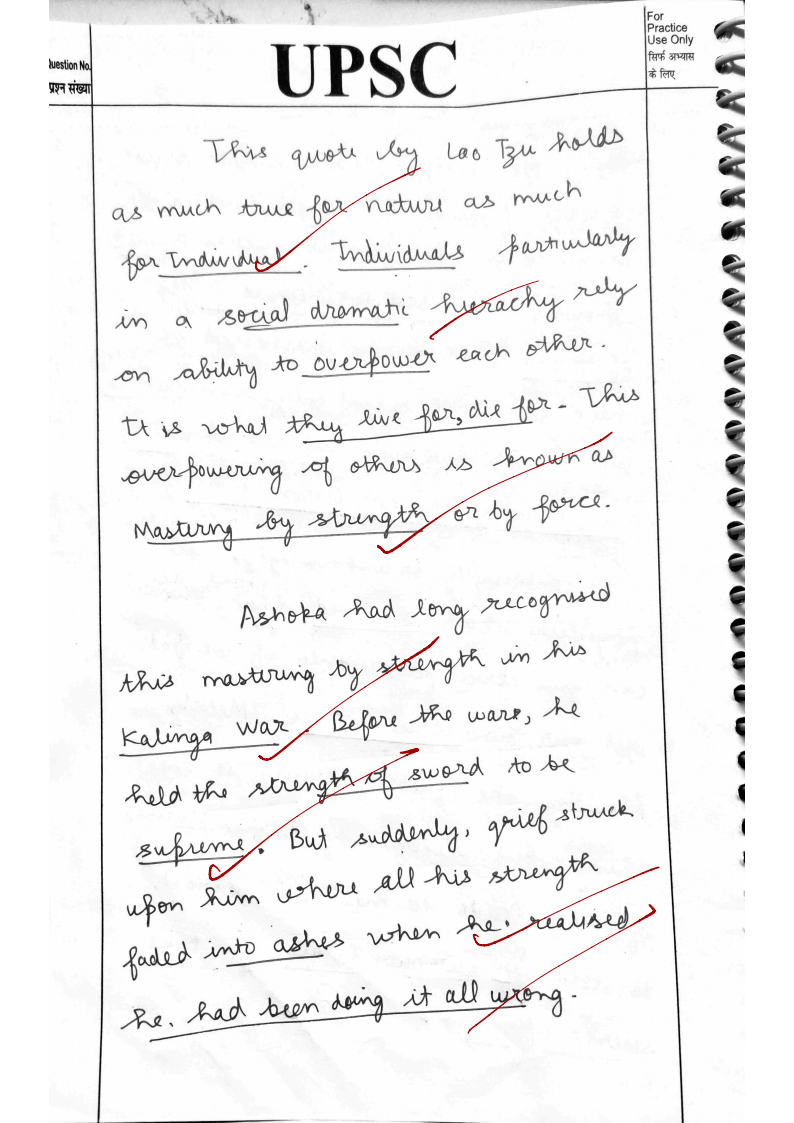 Question No.
प्रश्न संख्या
UPSC
For
Practice
Use Only
सिर्फ अभ्यास
के लिए
This quote by Lao Tzu holds
as much true for nature as much
for Individual. Individuals particularly
in a social dramatic hierachy rely
on ability to overpower each other.
It is what they live for, die for. This
overpowering of others is known as
Masterng by strength or by force.
Ashoka had long recognised
this mastering by strength in his
Kalinga War. Before the wars, he
held the strength of sword to be
supreme. But suddenly, grief struck
upon him where all his strength
faded into ashes when he. realised
he. had been doing it all wrong.